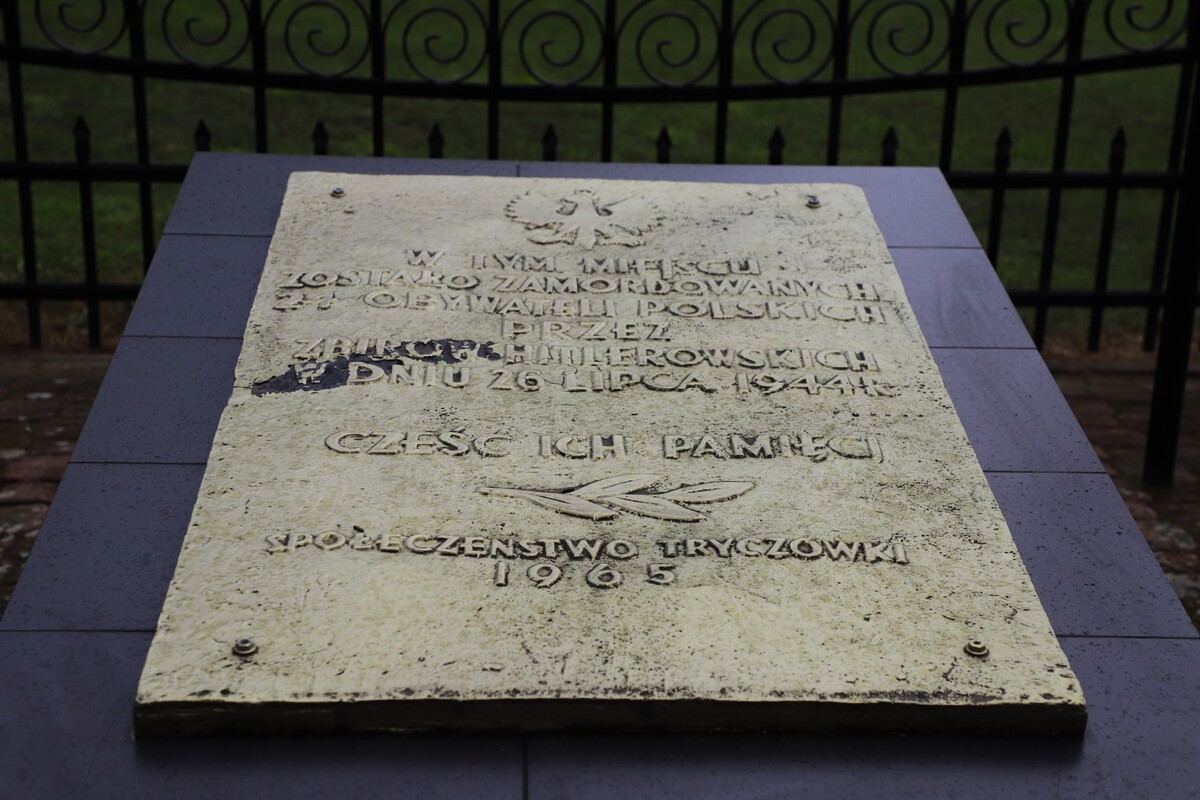 W TYM MIEJSCU
ZOSTAŁO ZAMORDOWANYCH
24 OBYWATELI POLSKICH
PRZEZ
ZBIRÓW HITLEROWSKICH
W DNIU 26 LIPCA 1944 R
CZEŚĆ ICH PAMIĘCI
SPOŁECZEŃSTWO TRYCZÓWKI
1965